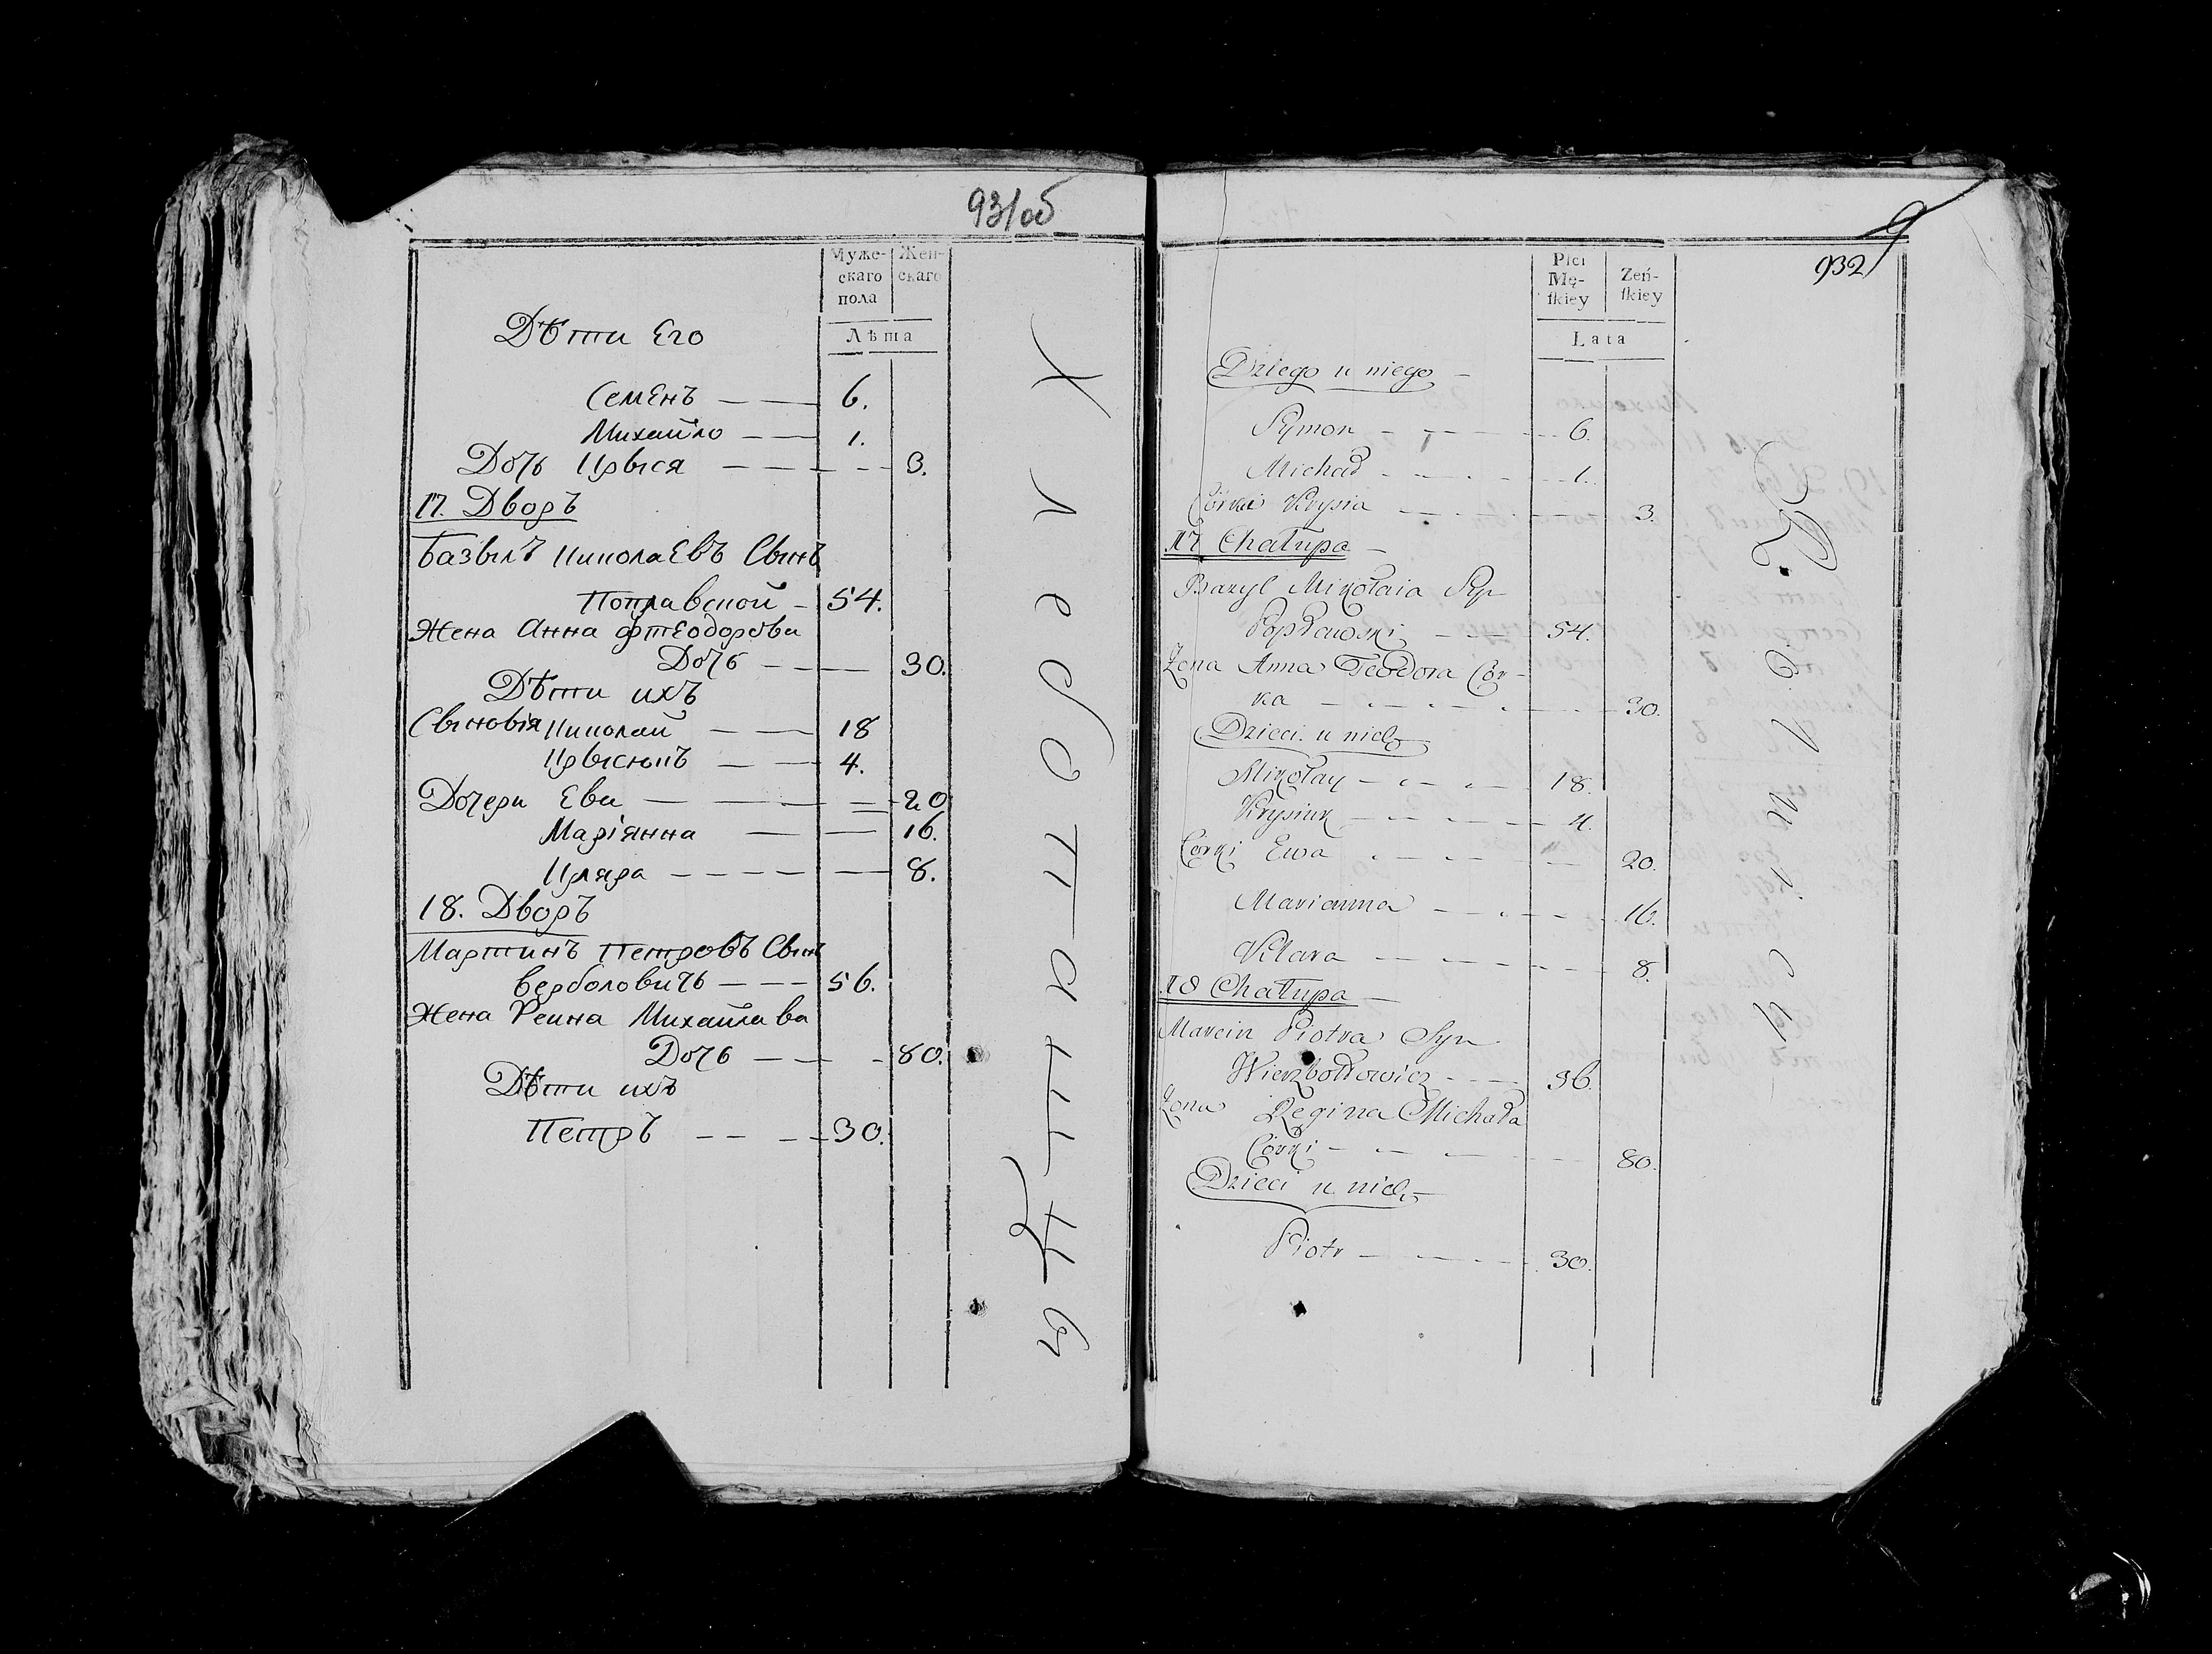 931об
Муже-
скаго
пола
Жен-
скаго
Лѣта
Дѣти Его
Семенъ — — 6.
Михайло — — 1.
Дочь Крыся — — — — 3.
17. Дворъ
Базылъ Николаевъ Сынъ
Поплавской — 54.
Жена Анна Фтеодорова
Дочь — — 30.
Дѣти ихъ
Сыновія Николай — — 18
Крысюкъ — — 4.
Дочери Ева — — — 20
Маріянна — — 16.
Кляра — — — — — 8.
18. Дворъ
Мартинъ Петровъ Сынъ
Верболовичь — — — 56.
Жена Реина Михайлава
Дочь — — — 80.
Дѣти ихъ
Петръ — — — 30.
Хлебопашцы
932
Płci
Mę-
skiey
Żeń-
skiey
Lata
Dziego u niego —
Symon — — — 6.
Michał — — — 1.
Córka Krysia — — — 3.
17 Chałupa —
Bazyl Mikołaia Syn
Popławski — — 54.
Żona Anna Teodora Cór-
ka — — — 30.
Dzieci u nich
Mikołay — — — 18.
Krysiuk — — — 4.
Córki Ewa — — — 20.
Marianna — — — 16.
Klara — — — 8.
18 Chałupa —
Marcin Piotra Syn
Wierzbołowicz — — 56.
Żona Regina Michała
Córki — — — 80.
Dzieci u nich —
Piotr — — — 30.
Rolnicy